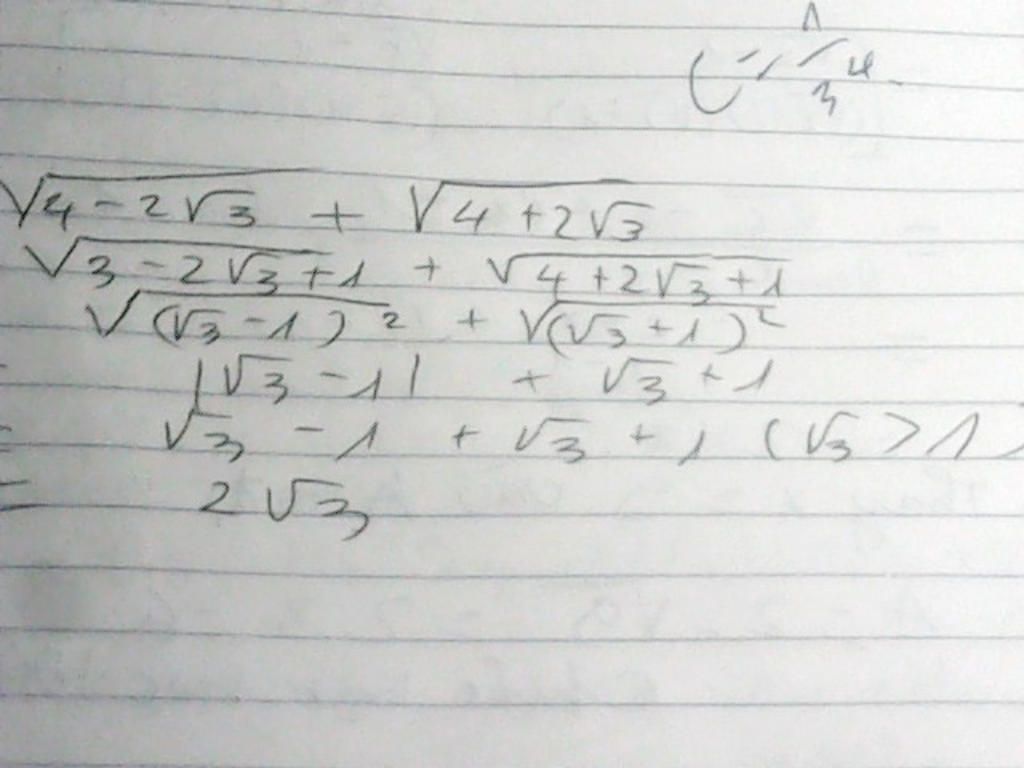 √4 - 2√3 + √4 + 2√3
√3 - 2√3 + 1 + √4 + 2√3 + 1
√(√3 - 1)² + √(√3 + 1)²
|√3 - 1| + √3 + 1
= √3 - 1 + √3 + 1 (√3 > 1)
= 2√3